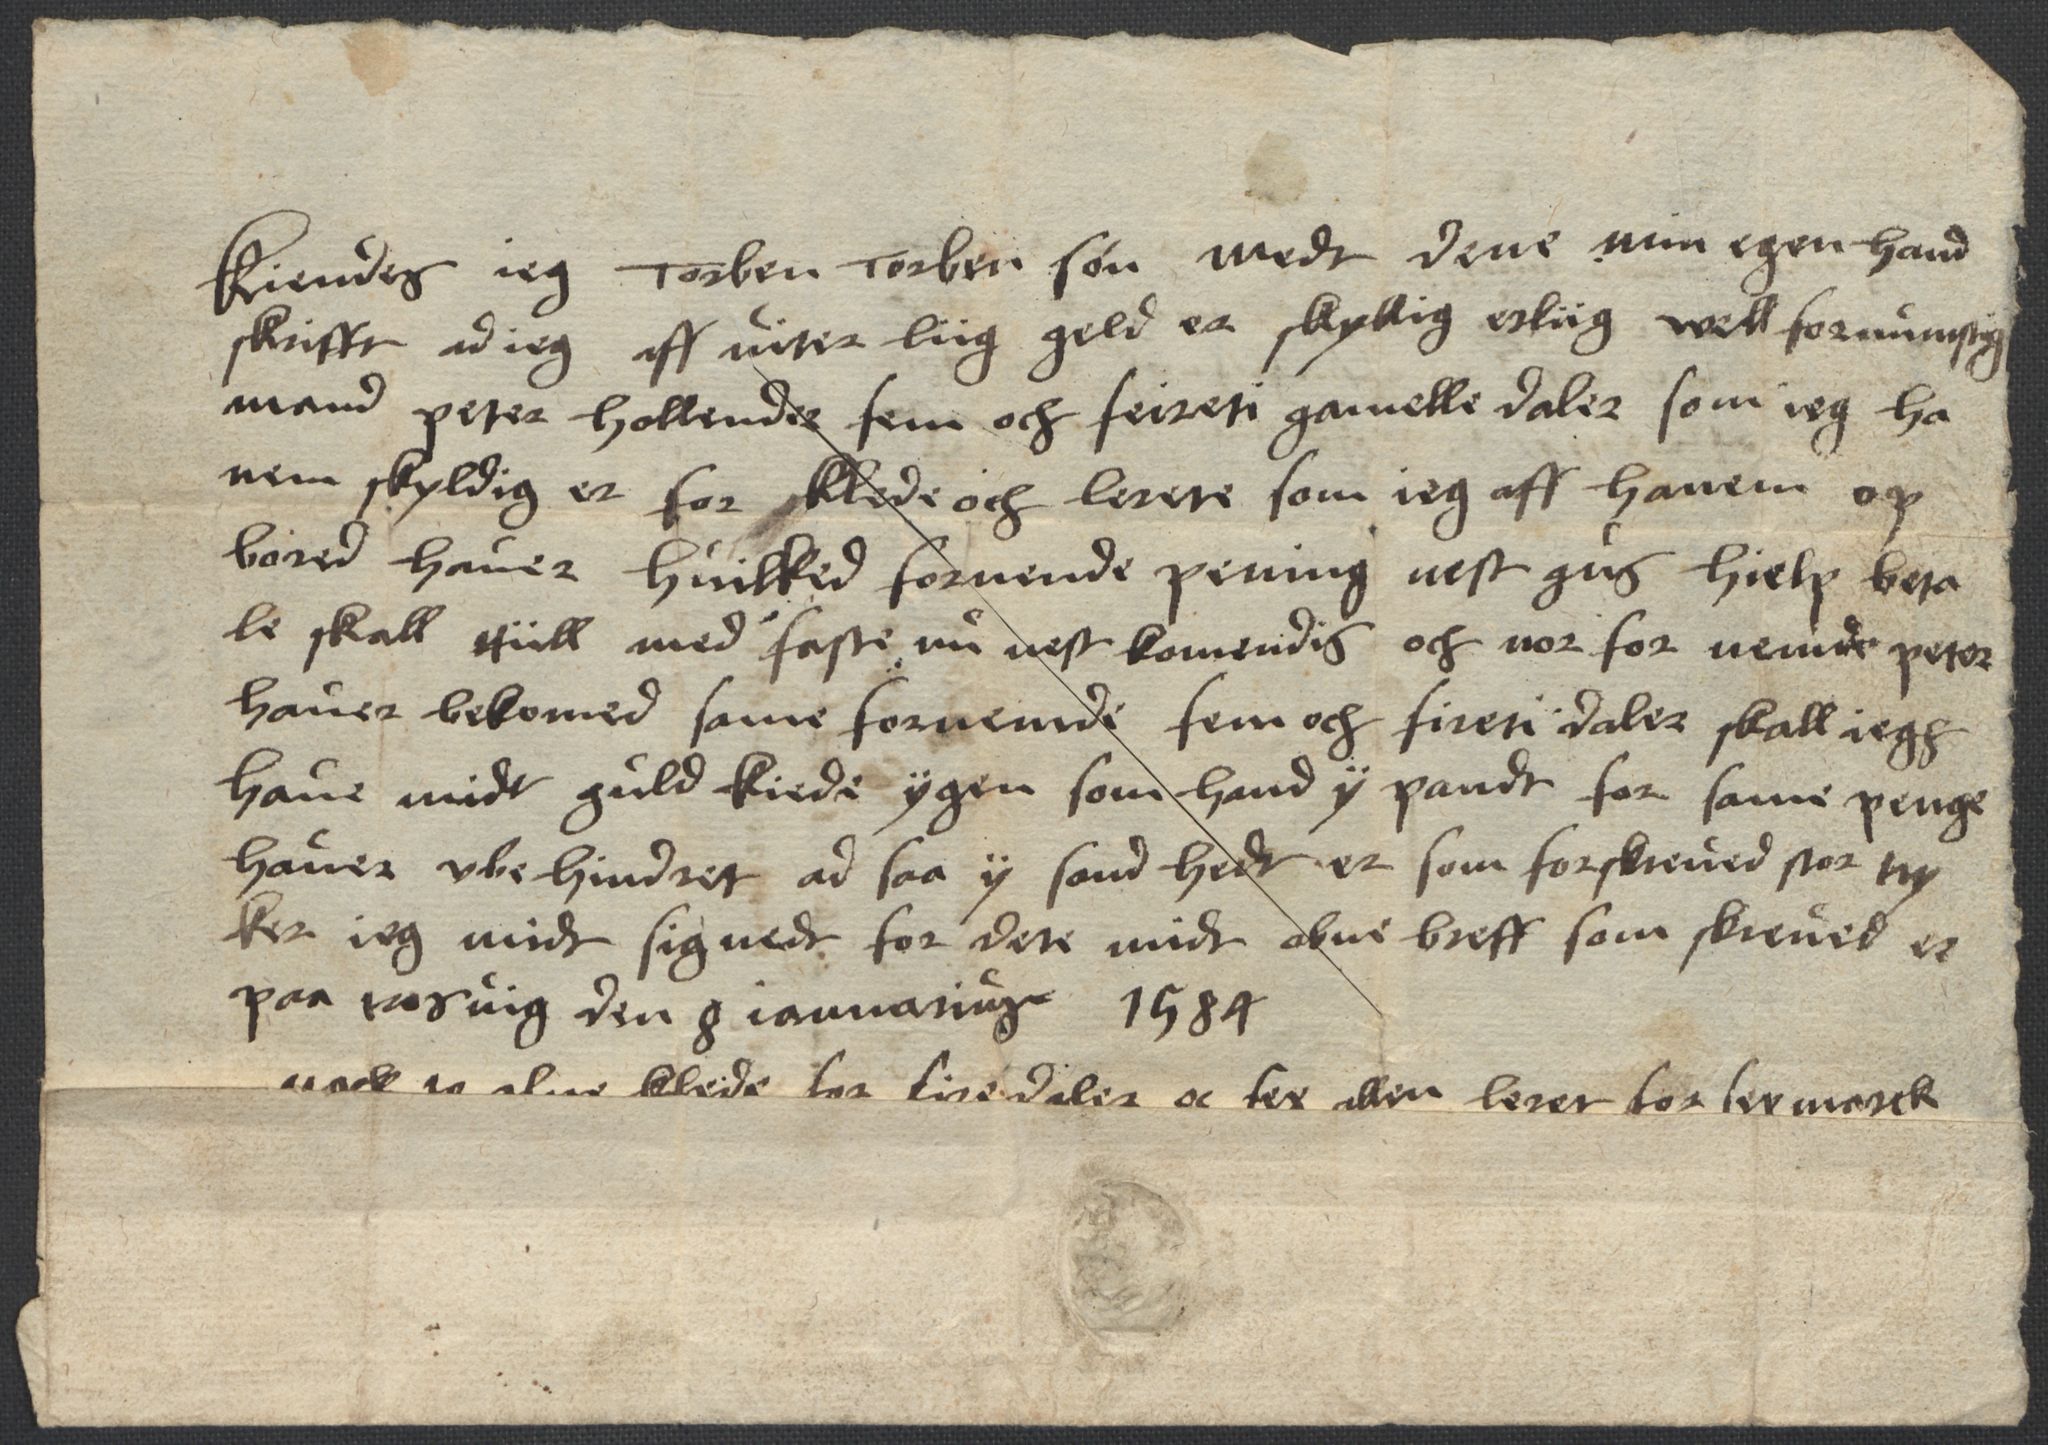 Kiendes ieg Torben Torben søn medt dene min egen hand
skrifft ad ieg aff uiter liig geld er skyllig erliig well fornumstig
mand peter hollender fem och feireti gamelle daler som ieg ha
nem skyldig er for klede och lerete som ieg aff hanem op
bored hauer huilked fornende pening nest gus hielp beta
le skall tiill med faste nu nest komendis och nor for nemde peter
hauer bekomed same fornemde fem och fireti daler skall iegh
haue midt guld kiede ygen som hand ÿ pandt for same penge
hauer vbehindret ad saa ÿ sand hedt er som forskreued stor try
ker ieg midt signedt for dete midt obne breff som skreued er
paa uig den 8 iannarius 1584
nock alne klede for fire daler oc sex allen leret for sex marck